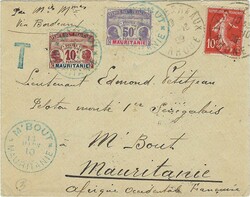 Via Bordeaux
T
10
MAURITANIE
50
MAURITANIE
10
Lieutenant Edmond Petitjean
Peloton monté 1er Sénégalais
M'Bout
Mauritanie
Afrique Occidentale Française
M'BOUT
MAURITANIE